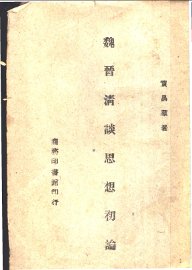 賀昌羣著
魏晉清談思想初論
商務印書館印行